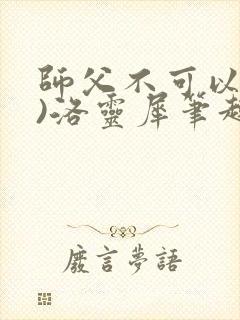 師父不可以
)洛靈犀筆趣
廢言夢語